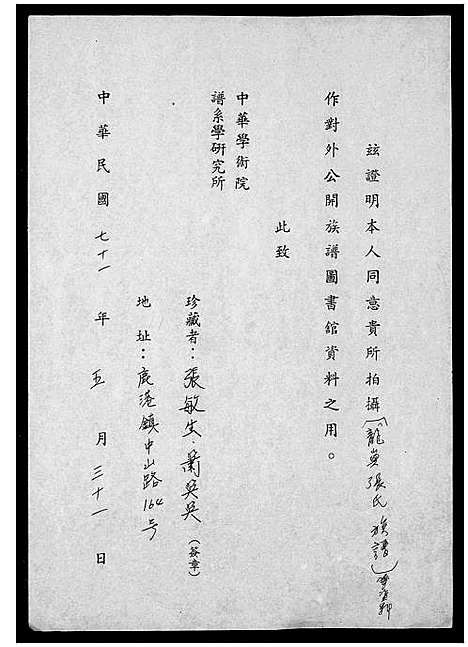 茲證明本人同意貴所拍攝(龍兾張氏族譜)等資料
作對外公開族譜圖書館資料之用。
此致
中華學術院
譜系學研究所
珍藏者：張敏生．蕭吳吳（簽章）
地址：鹿港鎮中山路164号
中華民國七十一年五月三十一日